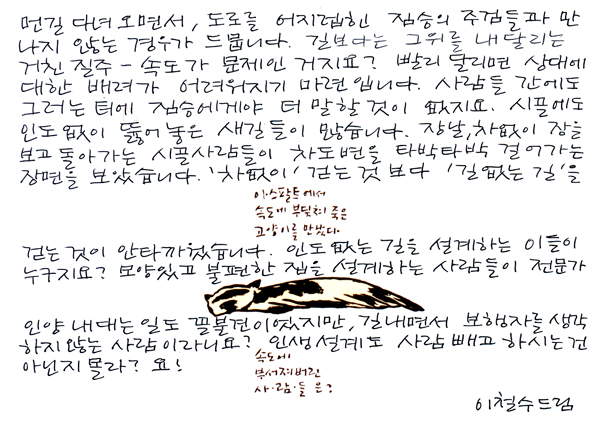 먼길 다녀오면서, 도로를 어지럽힌 짐승의 주검들과 만
나지 않는 경우가 드뭅니다. 길보다는 그위를 내달리는
거친 질주 - 속도가 문제인 거지요? 빨리 달리면 상대에
대한 배려가 어려워지기 마련입니다. 사람들 간에도
그러는 터에 짐승에게야 더 말할 것이 없지요. 시골에도
인도없이 뚫어 놓은 새길들이 많습니다. 장날, 차없이 장을
보고 돌아가는 시골사람들이 차도변을 타박타박 걸어가는
장면을 보았습니다. '차없이' 걷는 것 보다 '길없는 길'을
아스팔트에서
속도에 부딪혀 죽은
고양이를 만났다.
걷는 것이 안타까웠습니다. 인도 없는 길을 설계하는 이들이
누구지요? 모양있고 불편한 집을 설계하는 사람들이 전문가
인양 내대는 일도 꼴불견이었지만, 길내면서 보행자를 생각
하지 않는 사람이라니요? 인생설계도 사람 빼고 하시는건
아닌지 몰라? 요!
속도에
부서져버린
사·람·들은?
이철수드림